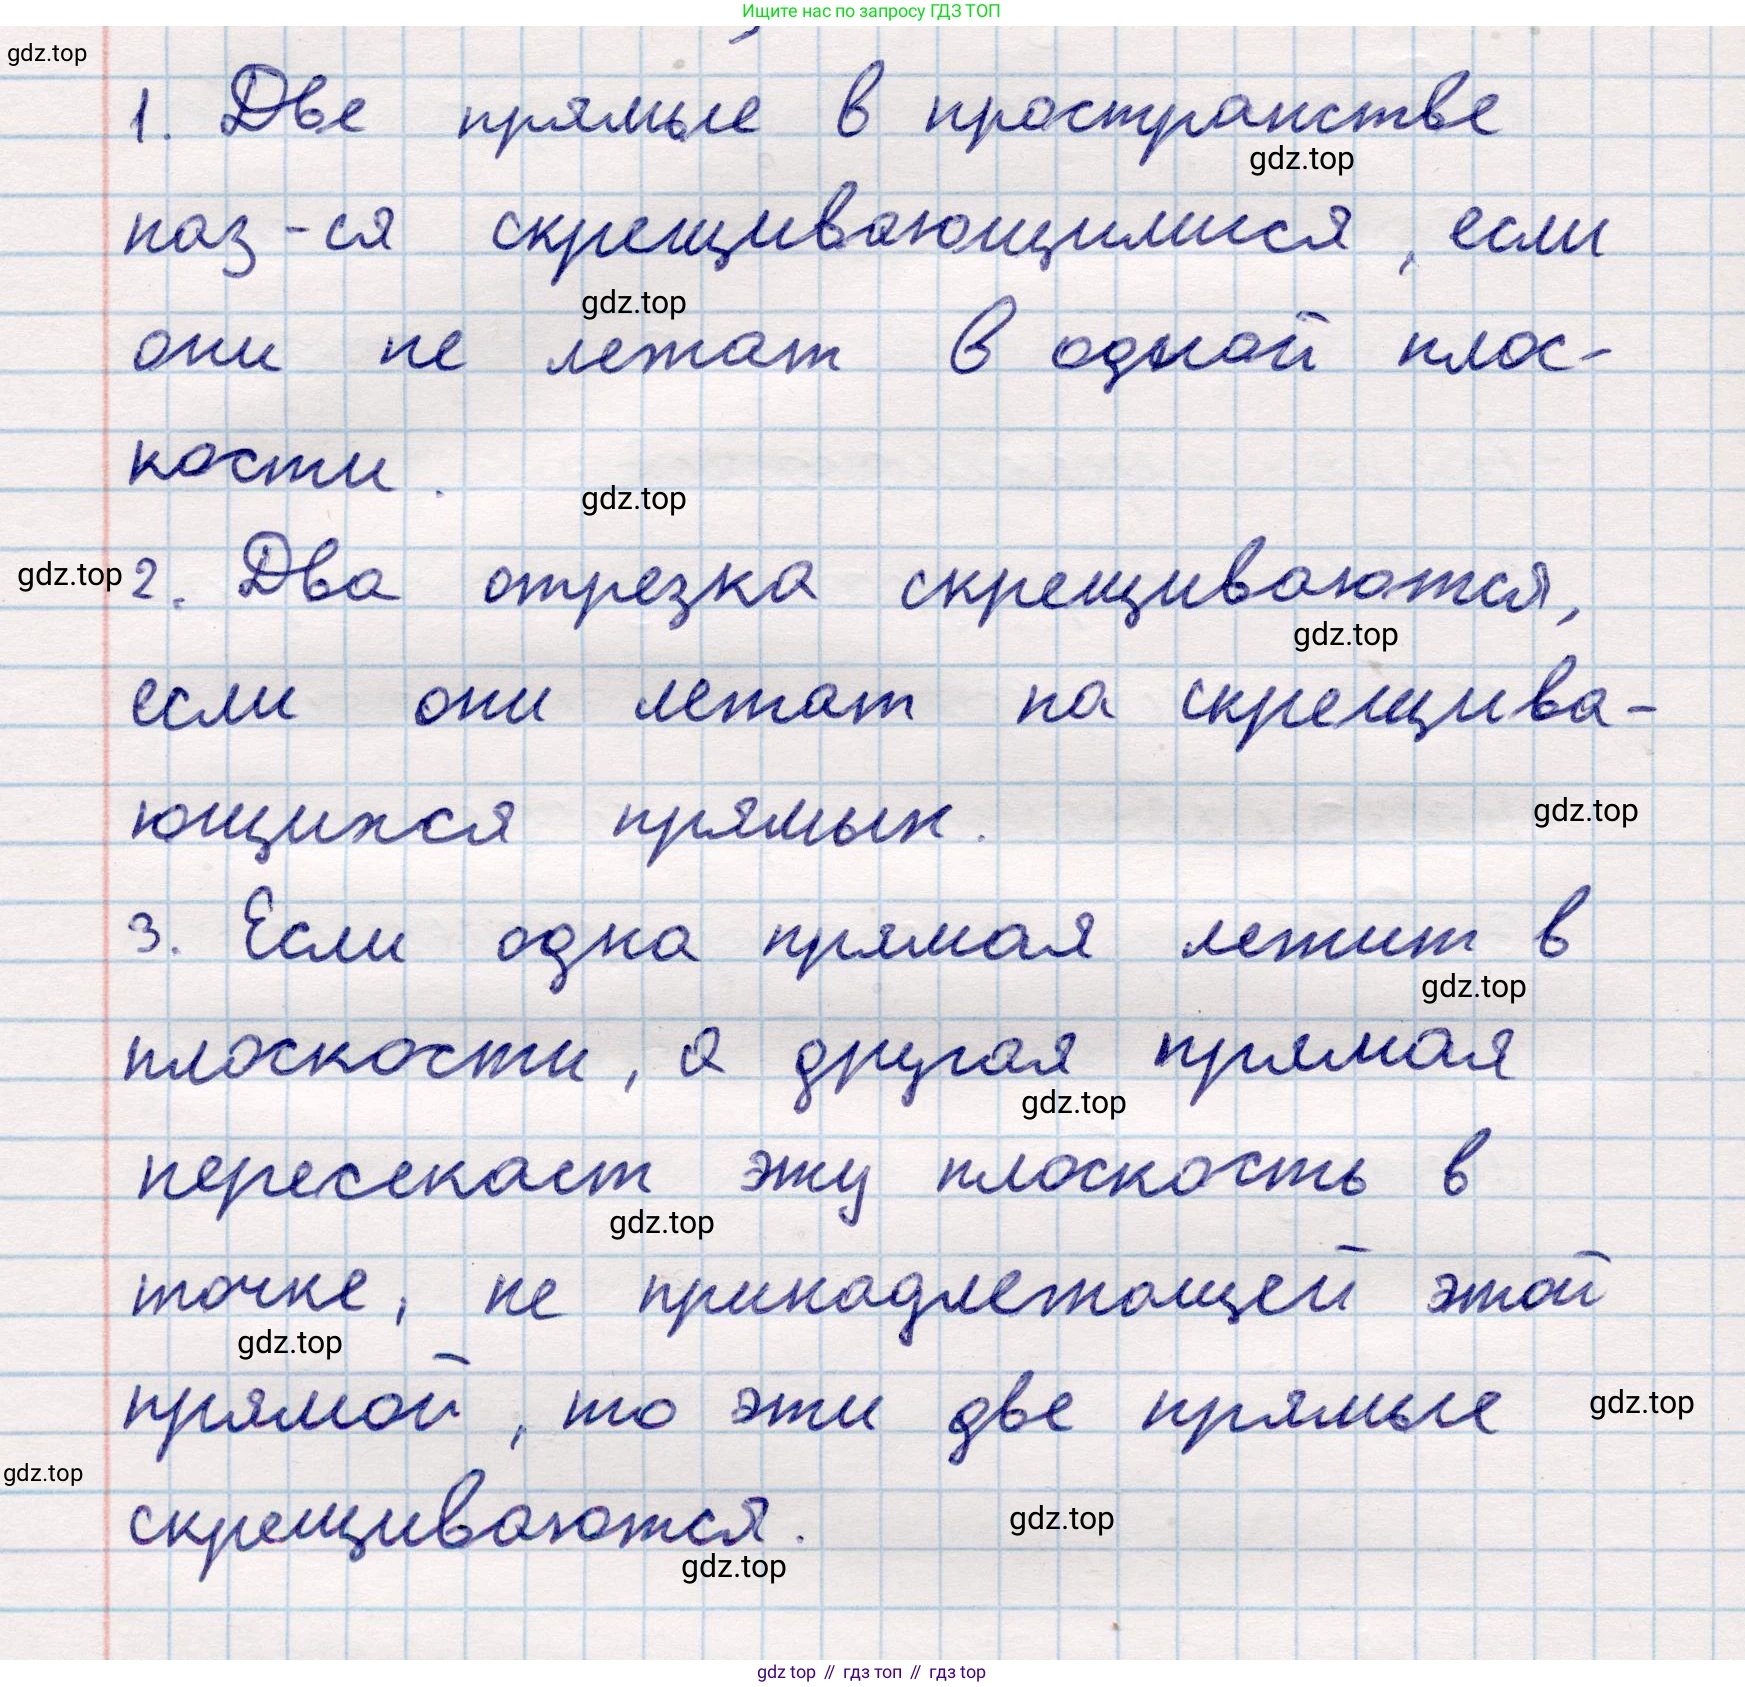 Ищите нас по запросу ГДЗ ТОП
gdz.top
1. Две прямые в пространстве
gdz.top
наз-ся скрещивающимися, если
gdz.top
они не лежат в одной плос-
кости.
gdz.top
gdz.top
2. Два отрезка скрещиваются,
gdz.top
если они лежат на скрещива-
ющихся прямых.
gdz.top
3. Если одна прямая лежит в
gdz.top
плоскости, а другая прямая
gdz.top
пересекает эту плоскость в
gdz.top
точке, не принадлежащей этой
gdz.top
прямой, то эти две прямые
gdz.top
gdz.top
скрещиваются.
gdz.top
gdz.top
gdz top // гдз топ // гдз top